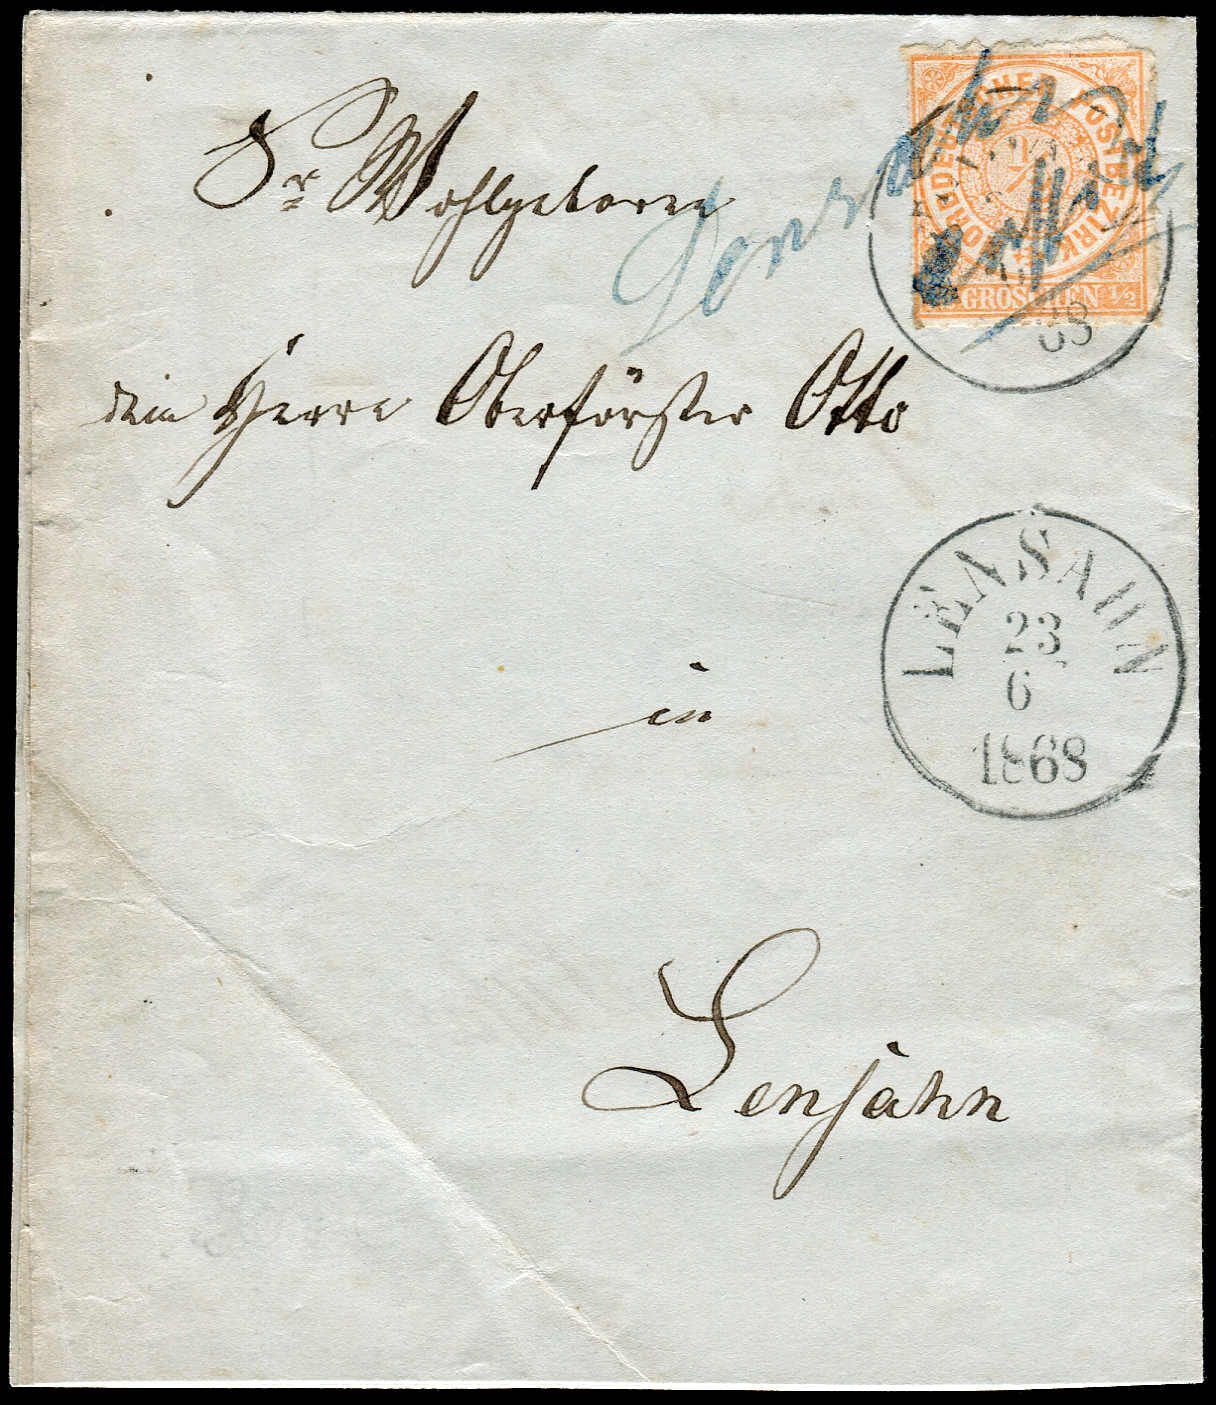 Sr Wohlgeboren
dem Herrn Oberförster Otto
in
Lensahn
NORDDEUTSCHER POSTBEZIRK
1/2
GROSCHEN 1/2
68
Lensahn
LENSAHN
23
6
1868